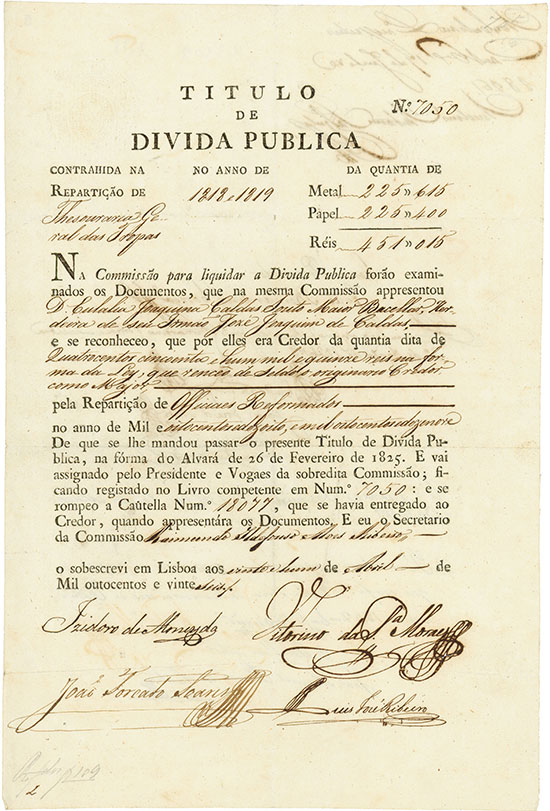 TITULO
DE
DIVIDA PUBLICA
N.º 7050
CONTRAHIDA NA NO ANNO DE DA QUANTIA DE
REPARTIÇÃO DE 1818 e 1819 Metal 225 „ 615
Thesouraria Ge- Papel 225 „ 400
ral das Tropas Réis 451 „ 015
NA Commissão para liquidar a Divida Publica forão exami-
nados os Documentos, que na mesma Commissão appresentou
D. Eulalia Joaquina Caldas Souto Maior Bacellar, Her-
deira de seu Irmão José Joaquim de Caldas
e se reconheceo, que por elles era Credor da quantia dita de
Quatrocentos cincoenta e hum mil e quinze reis na for-
ma da Ley, que venceo de Soldo o originario Credor
como Major
pela Repartição de Officiaes Reformados
no anno de Mil e oitocentos dezoito, e mil oitocentos dezenove
De que se lhe mandou passar o presente Titulo de Divida Pu-
blica, na fórma do Alvará de 26 de Fevereiro de 1825. E vai
assignado pelo Presidente e Vogaes da sobredita Commissão; fi-
cando registado no Livro competente em Num.º 7050: e se
rompeo a Caûtella Num.º 18077, que se havia entregado ao
Credor, quando appresentára os Documentos. E eu o Secretario
da Commissão Raimundo Ildefonso Alves Ribeiro
o sobescrevi em Lisboa aos vinte e hum de Abril de
Mil outocentos e vinte e seis
Izidoro de
Vitorino da S.ª Moraes
João Torcato Soares
Luis José Ribeiro
2